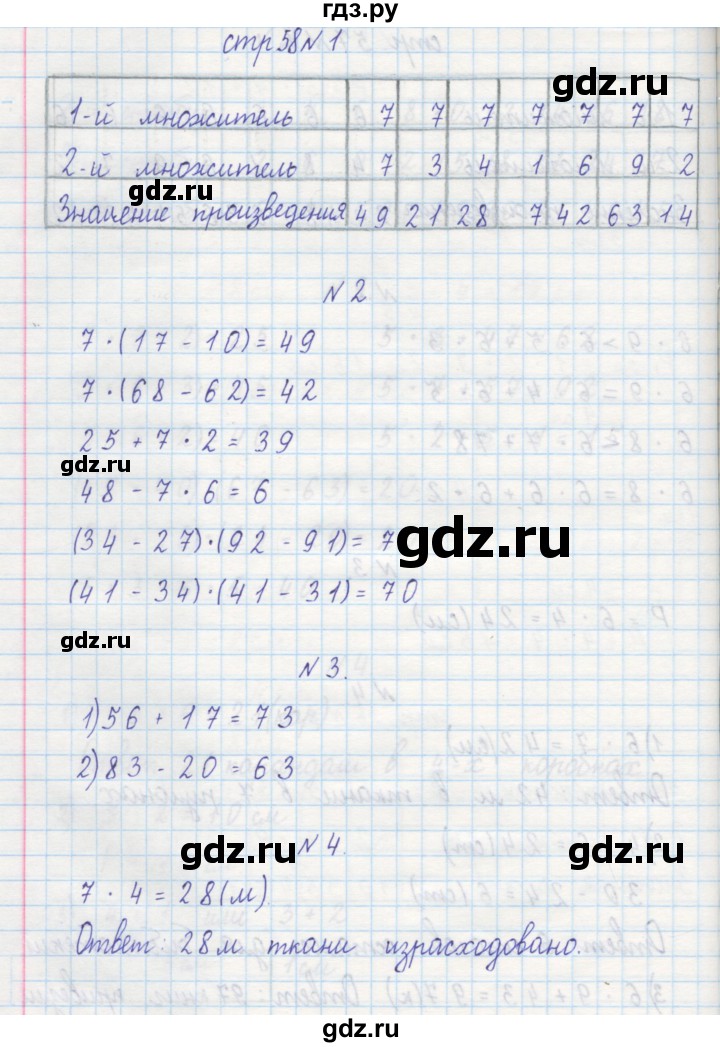 гдз.ру
стр 58 N 1
1-й множитель 7 7 7 7 7 7 7
2-й множитель 7 3 4 1 6 9 2
Значение произведения 49 21 28 7 42 63 14
gdz.ru
gdz.ru
N 2
7 · (17 - 10) = 49
7 · (68 - 62) = 42
25 + 7 · 2 = 39
gdz.ru
48 - 7 · 6 = 6
(34 - 27) · (92 - 91) = 7
gdz.ru
(41 - 34) · (41 - 31) = 70
gdz.ru
N 3.
1) 56 + 17 = 73
2) 83 - 20 = 63
N 4.
gdz.ru
gdz.ru
7 · 4 = 28 (м)
Ответ: 28 м ткани израсходовано.
gdz.ru
gdz.ru